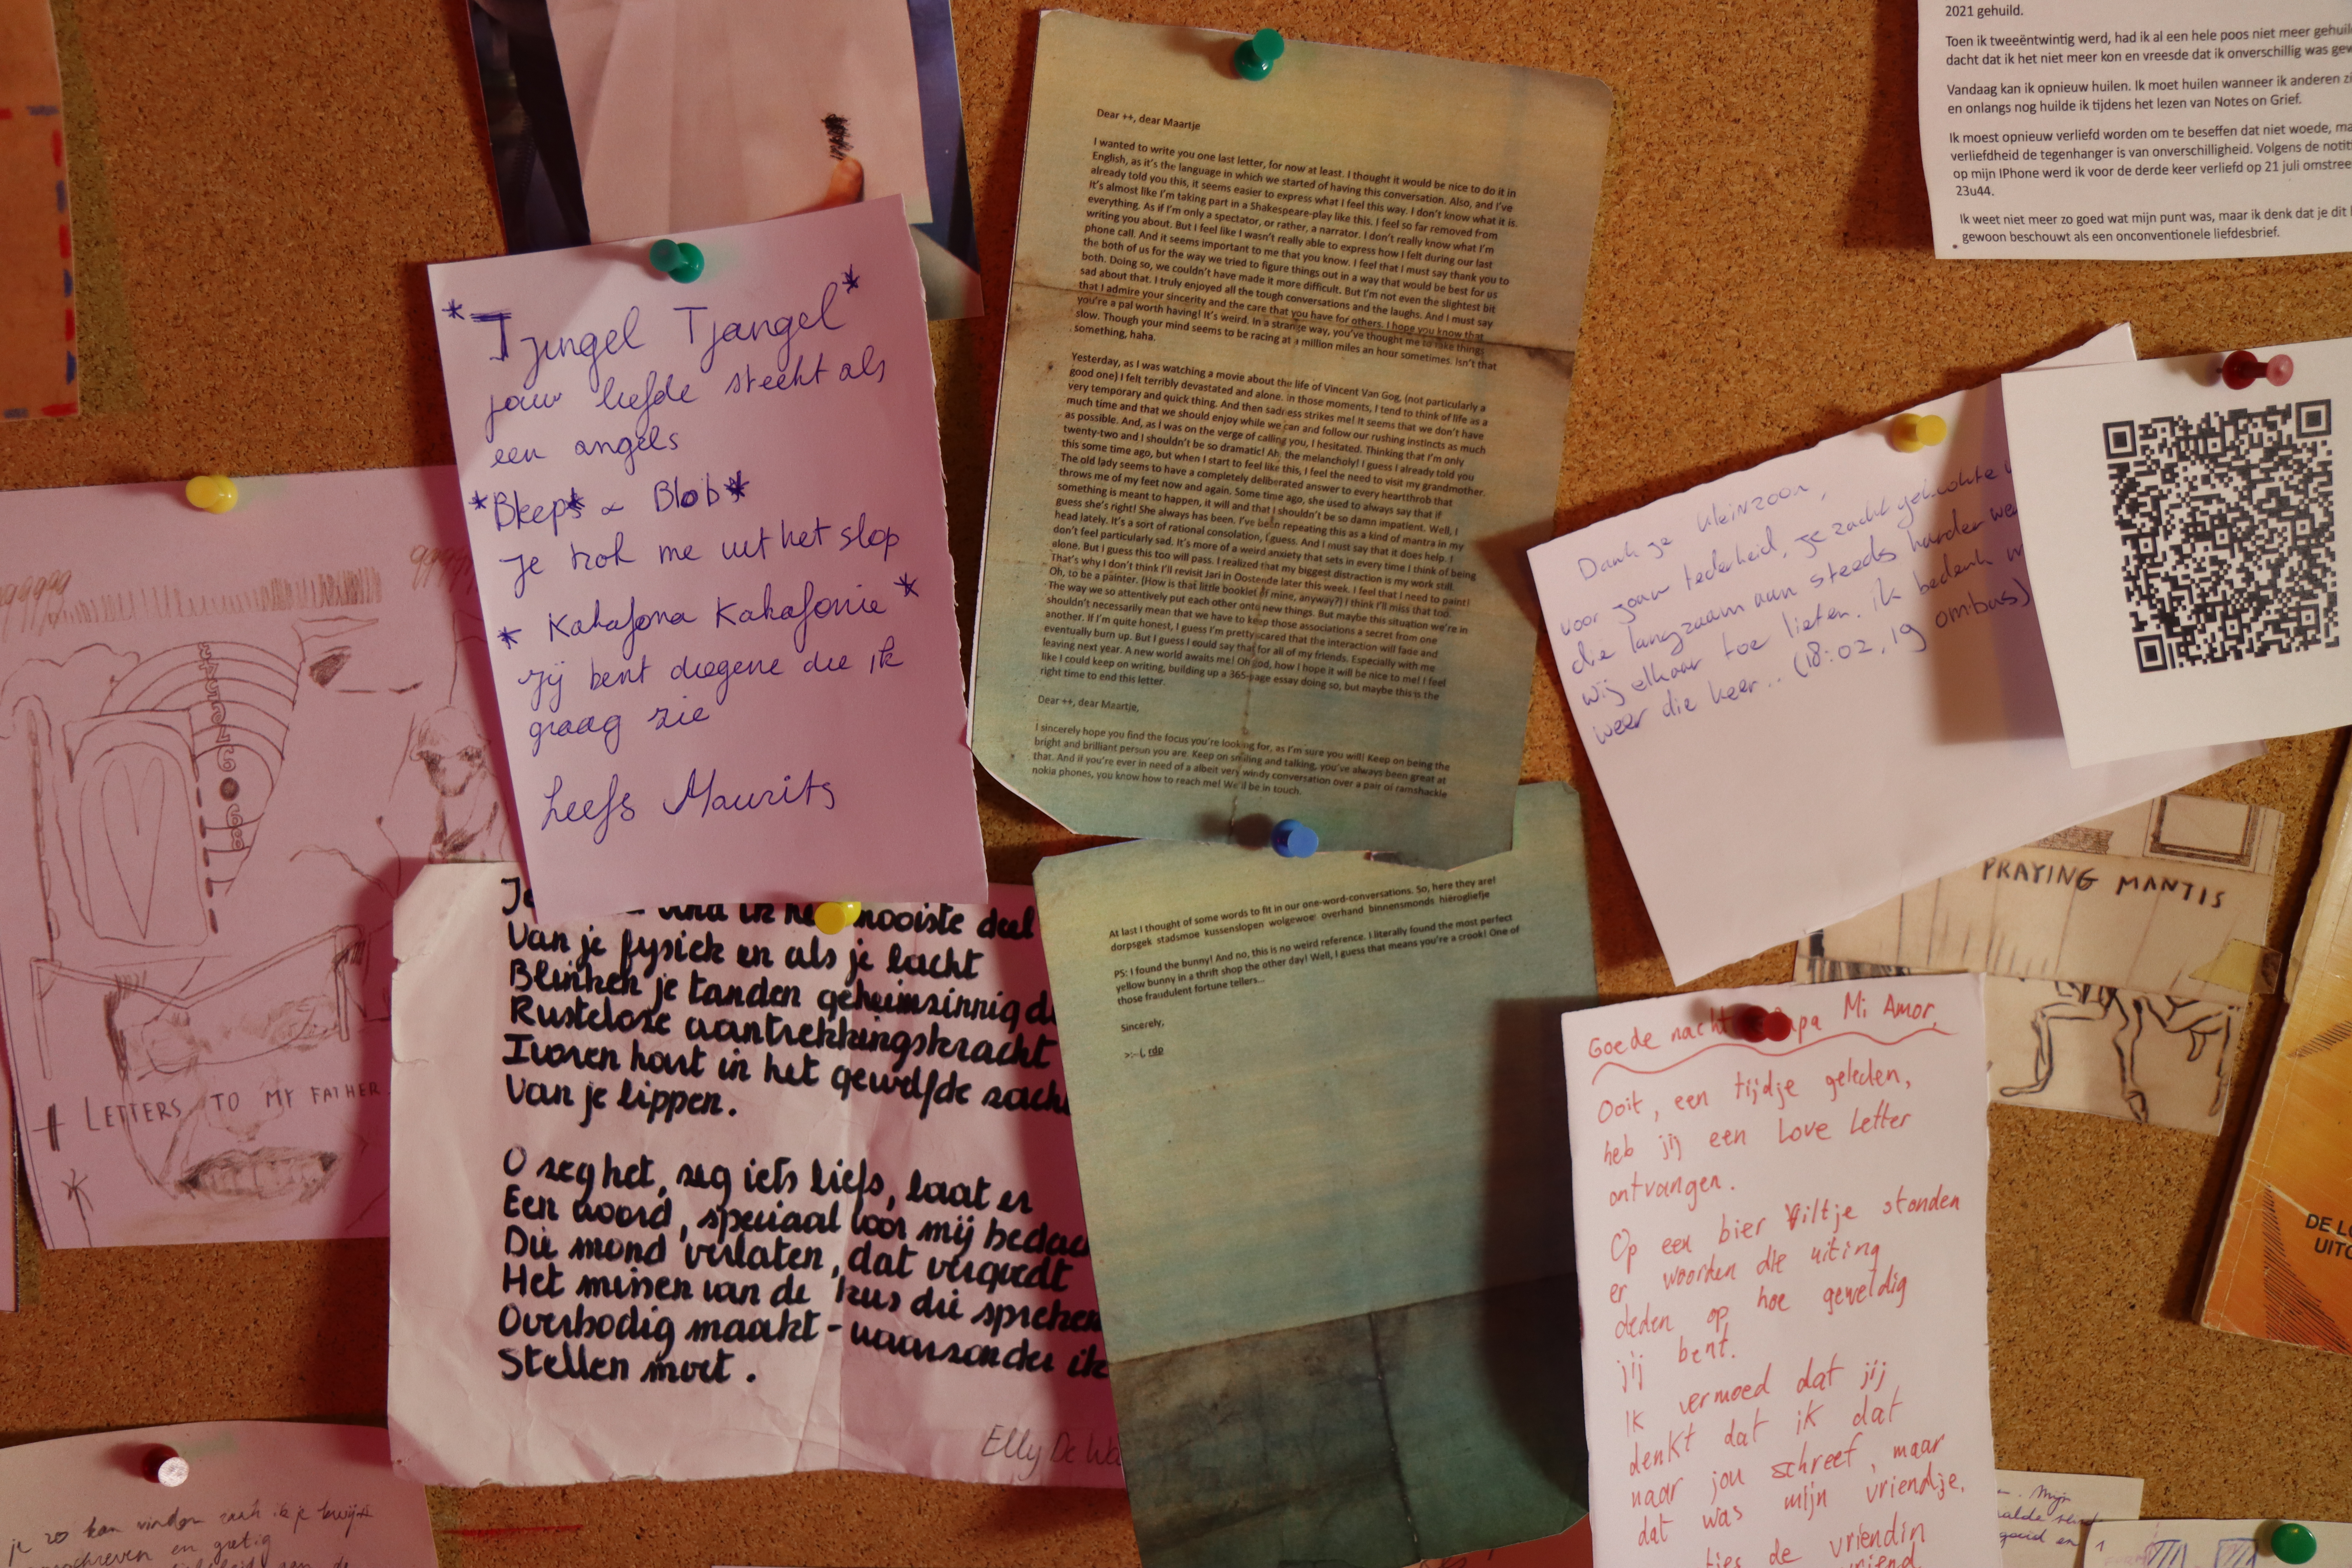 2021 gehuild.
Toen ik tweeëntwintig werd, had ik al een hele poos niet meer
dacht dat ik het niet meer kon en vreesde dat ik onverschillig was
Vandaag kan ik opnieuw huilen. Ik moet huilen wanneer ik anderen
en onlangs nog huilde ik tijdens het lezen van Notes on Grief.
Ik moest opnieuw verliefd worden om te beseffen dat niet woede,
verliefdheid de tegenhanger is van onverschilligheid. Volgens de
op mijn IPhone werd ik voor de derde keer verliefd op 21 juli
23u44.
Ik weet niet meer zo goed wat mijn punt was, maar ik denk dat je dit
gewoon beschouwt als een onconventionele liefdesbrief.
Dear ++, dear Maartje
I wanted to write you one last letter, for now at least. I thought it would be nice to do it in
English, as it's the language in which we started of having this conversation. Also, and I've
already told you this, it seems easier to express what I feel this way. I don't know what it is.
It's almost like I'm taking part in a Shakespeare-play like this. I feel so far removed from
everything. As if I'm only a spectator, or rather, a narrator. I don't really know what I'm
writing you about. But I feel like I wasn't really able to express how I felt during our last
phone call. And it seems important to me that you know. I feel that I must say thank you to
the both of us for the way we tried to figure things out in a way that would be best for us
both. Doing so, we couldn't have made it more difficult. But I'm not even the slightest bit
sad about that. I truly enjoyed all the tough conversations and the laughs. And I must say
that I admire your sincerity and the care that you have for others. I hope you know that
you're a pal worth having! It's weird. In a strange way, you've thought me to take things
slow. Though your mind seems to be racing at a million miles an hour sometimes. Isn't that
something, haha.
Yesterday, as I was watching a movie about the life of Vincent Van Gog, (not particularly a
good one) I felt terribly devastated and alone. In those moments, I tend to think of life as a
very temporary and quick thing. And then sadness strikes me! It seems that we don't have
much time and that we should enjoy while we can and follow our rushing instincts as much
as possible. And, as I was on the verge of calling you, I hesitated. Thinking that I'm only
twenty-two and I shouldn't be so dramatic! Ah, the melancholy! I guess I already told you
this some time ago, but when I start to feel like this, I feel the need to visit my grandmother.
The old lady seems to have a completely deliberated answer to every heartthrob that
throws me of my feet now and again. Some time ago, she used to always say that if
something is meant to happen, it will and that I shouldn't be so damn impatient. Well, I
guess she's right! She always has been. I've been repeating this as a kind of mantra in my
head lately. It's a sort of rational consolation, I guess. And I must say that it does help. I
don't feel particularly sad. It's more of a weird anxiety that sets in every time I think of being
alone. But I guess this too will pass. I realized that my biggest distraction is my work still.
That's why I don't think I'll revisit Jari in Oostende later this week. I feel that I need to paint!
Oh, to be a painter. (How is that little booklet of mine, anyway?) I think I'll miss that too.
The way we so attentively put each other onto new things. But maybe this situation we're in
shouldn't necessarily mean that we have to keep those associations a secret from one
another. If I'm quite honest, I guess I'm pretty scared that the interaction will fade and
eventually burn up. But I guess I could say that for all of my friends. Especially with me
leaving next year. A new world awaits me! Oh god, how I hope it will be nice to me! I feel
like I could keep on writing, building up a 365-page essay doing so, but maybe this is the
right time to end this letter.
Dear ++, dear Maartje,
I sincerely hope you find the focus you're looking for, as I'm sure you will! Keep on being the
bright and brilliant persun you are. Keep on smiling and talking, you've always been great at
that. And if you're ever in need of a albeit very windy conversation over a pair of ramshackle
nokia phones, you know how to reach me! We'll be in touch.
At last I thought of some words to fit in our one-word-conversations. So, here they are!
dorpsgek stadsmoe kussenslopen wolgewoe overhand binnensmonds hiërogliefje
PS: I found the bunny! And no, this is no weird reference. I literally found the most perfect
yellow bunny in a thrift shop the other day! Well, I guess that means you're a crook! One of
those fraudulent fortune tellers...
Sincerely,
>:-(, rdp
*Tjingel Tjangel*
jouw liefde steekt als
een angels
*Bleeps & Blobs*
Je trok me uit het slop
* Kakafona Kakafonie *
Jij bent diegene die ik
graag zie
Liefs Maurits
LETTERS TO MY FATHER
mooiste deel
Van je fysiek en als je lacht
Blinken je tanden geheimzinnig
Rusteloze aantrekkingskracht
Ivoren hart in het gewelfde
Van je lippen.
O zeg het, zeg iets liefs, laat er
Een woord, speciaal voor mij
Die mond verlaten, dat vergoedt
Het missen van de kus die spreken
Overbodig maakt - waarzonder ik
Stellen moet.
Elly De
Dank je kleinzoon,
voor jouw tederheid, je zacht gekookte
die langzaam aan steeds harder
wij elkaar toe lieten. ik bedenk
weer die keer.. (18:02, 19 ombus)
PRAYING MANTIS
Goede nacht Mi Amor,
Ooit, een tijdje geleden,
heb jij een Love Letter
ontvangen.
Op een bier viltje stonden
er woorden die uiting
deden op hoe geweldig
jij bent.
Ik vermoed dat jij
denkt dat ik dat
naar jou schreef, maar
dat was mijn vriendje.
de vriendin
DE
je zo kan vinden zoek ik je
en gretig
Mijn